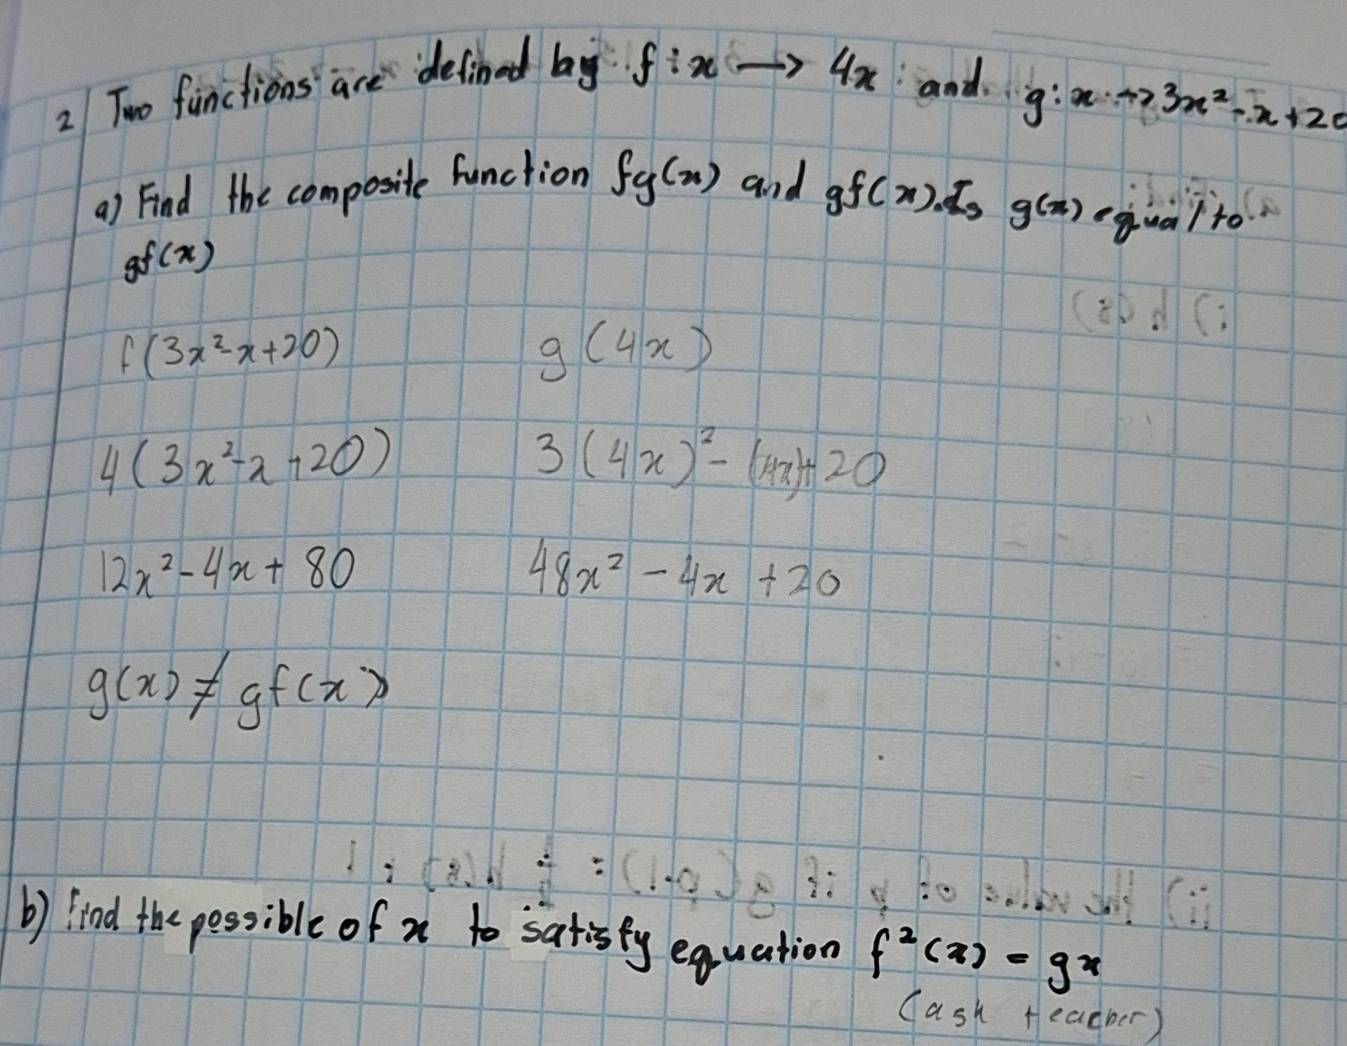 2 Two functions are defined by f : x → 4x and g : x → 3x² - x + 20
a) Find the composite function fg(x) and gf(x). Is g(x) equal to
gf(x)
f(3x²-x+20) g(4x)
4(3x²-x+20) 3(4x)² - (4x)+20
12x²-4x+80 48x² - 4x + 20
g(x) ≠ gf(x)
b) Find the possible of x to satisfy equation f²(x) = gx
(ask teacher)